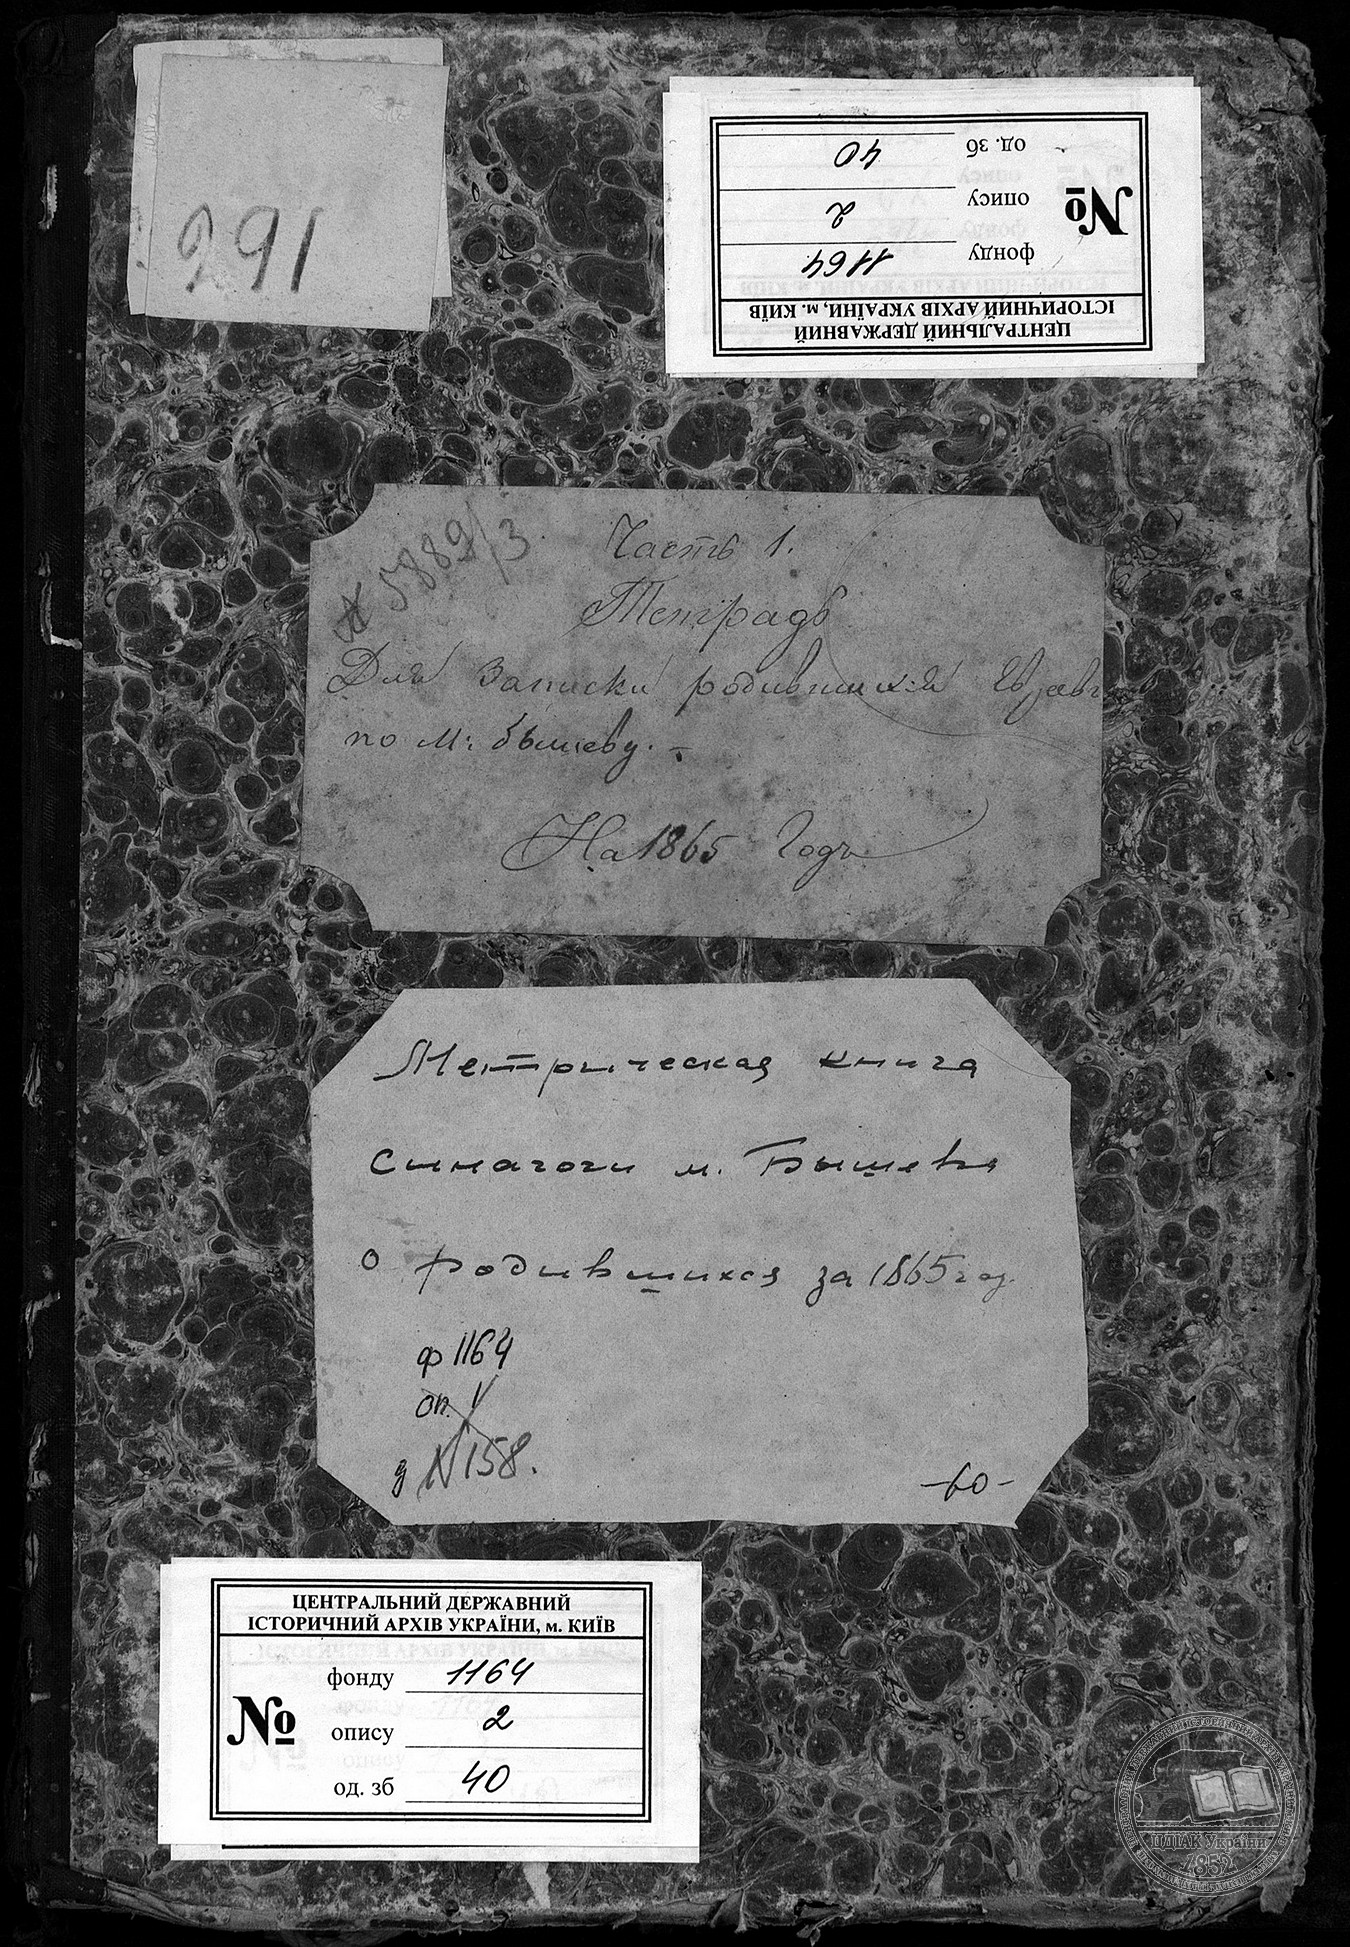 291
ЦЕНТРАЛЬНИЙ ДЕРЖАВНИЙ
ІСТОРИЧНИЙ АРХІВ УКРАЇНИ, м. КИЇВ
№
фонду 1164
опису 2
од. зб 40
№ 5889/3
Часть 1.
Тетрадь
Для записки родившихся Евреевъ
по м: бышеву. -
На 1865 Годъ
Метрическая книга
синагоги м. Бышева
о родившихся за 1865 год.
ф 1164
оп. 1
д N 158.
-60-
ЦЕНТРАЛЬНИЙ ДЕРЖАВНИЙ
ІСТОРИЧНИЙ АРХІВ УКРАЇНИ, м. КИЇВ
№
фонду 1164
опису 2
од. зб 40
ЦДІАК України
1852